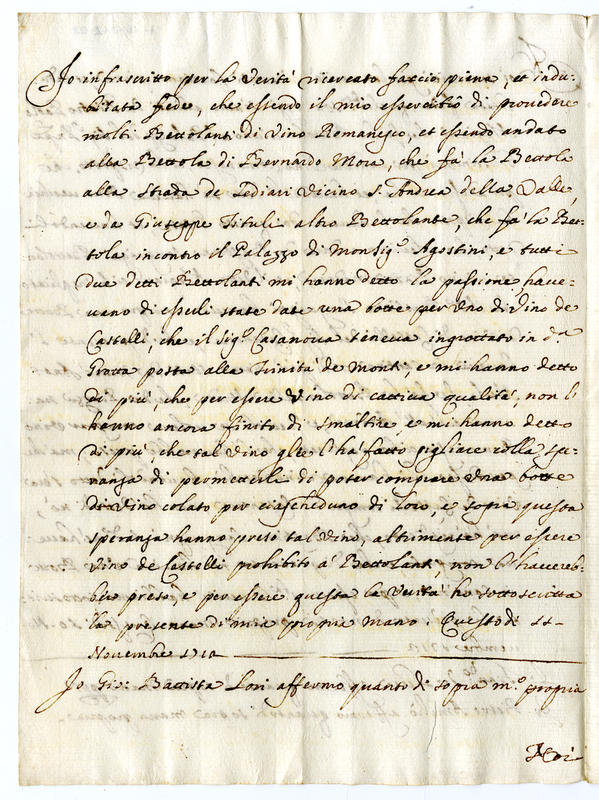 Io infrascritto per la verità ricercato faccio piena, et indu:
bitata fede, che essendo il mio essercitio di provedere
molti Bettolanti di Vino Romanesco, et essendo andato
alla Bettola di Bernardo Mora, che fà la Bettola
alla strada de Pediari vicino S. Andrea della Valle,
e da Giuseppe Tituli altro Bettolante, che fà la Bet:
tola incontro il Palazzo di Monsig.º Agostini, e tutti
due detti Bettolanti mi hanno detto la passione, have:
vano di esserli state date una botte per uno di vino de
Castelli, che il Sig.º Casanova teneva ingrottato in d.ª
Grotta posta alla Trinità de Monti, e mi hanno detto
di più, che per essere vino di cattiva qualità, non l'
hanno ancora finito di smaltire, e mi hanno detto
di più, che tal vino gle l'hà fatto pigliare colla spe:
ranza di permetterli di poter comprare una botte
di vino colato per ciascheduno di loro, e sopra questa
speranza hanno preso tal vino, altrimente per essere
vino de Castelli prohibito à Bettolanti, non l'haverеb:
bero preso, e per essere questa la verità ho sottoscritta
la presente di mia propria mano. Questo dì 11
Novembre 1710
Io Gio: Battista Lori affermo quanto di sopra m.º propria